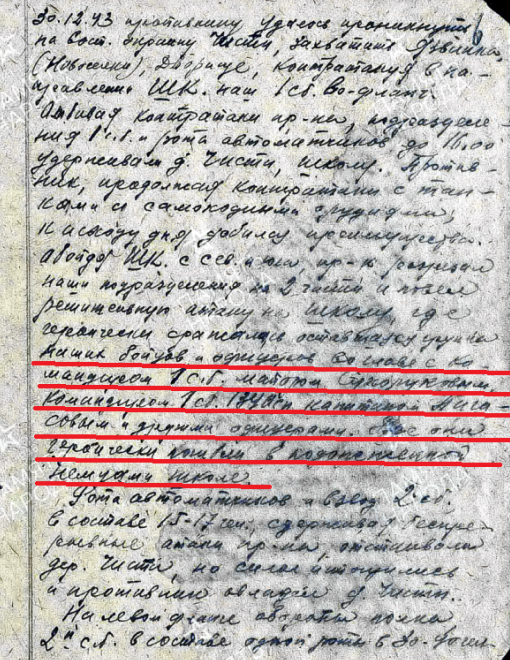 30.12.43 противнику удалось проникнуть
на Вост. окраину Чисти, захватить
(Новоселки), Дворище, контратакуя в на-
правлении ШК. наш 1 сб. во-фланг.
Отбивая контратаки пр-ка, подразделе-
ния 1 с.б. и рота автоматчиков до 16.00
удерживали д. Чисти, школу. Против-
ник, продолжая контратаки с тан-
ками и самоходными орудиями,
к исходу дня добился преимущества.
Обойдя ШК. с сев. и юга, пр-к разрезал
наши подразделения на 2 части и повел
решительную атаку на школу, где
героически сражалась оставшаяся группа
наших бойцов и офицеров во главе с ко-
мандиром 1 с.б. майором Сухоруковым
командиром 1 сб. капитаном
совым и другими офицерами. Все они
героически погибли в подожженной
немцами школе.
Рота автоматчиков и взвод 2 сб.
в составе 15-17 чел. сдерживая беспре-
рывные атаки пр-ка, отстаивали
дер. Чисти, но силы истощились
и противник овладел д. Чисти.
На левом фланге обороны полка
2й с.б. в составе одной роты в